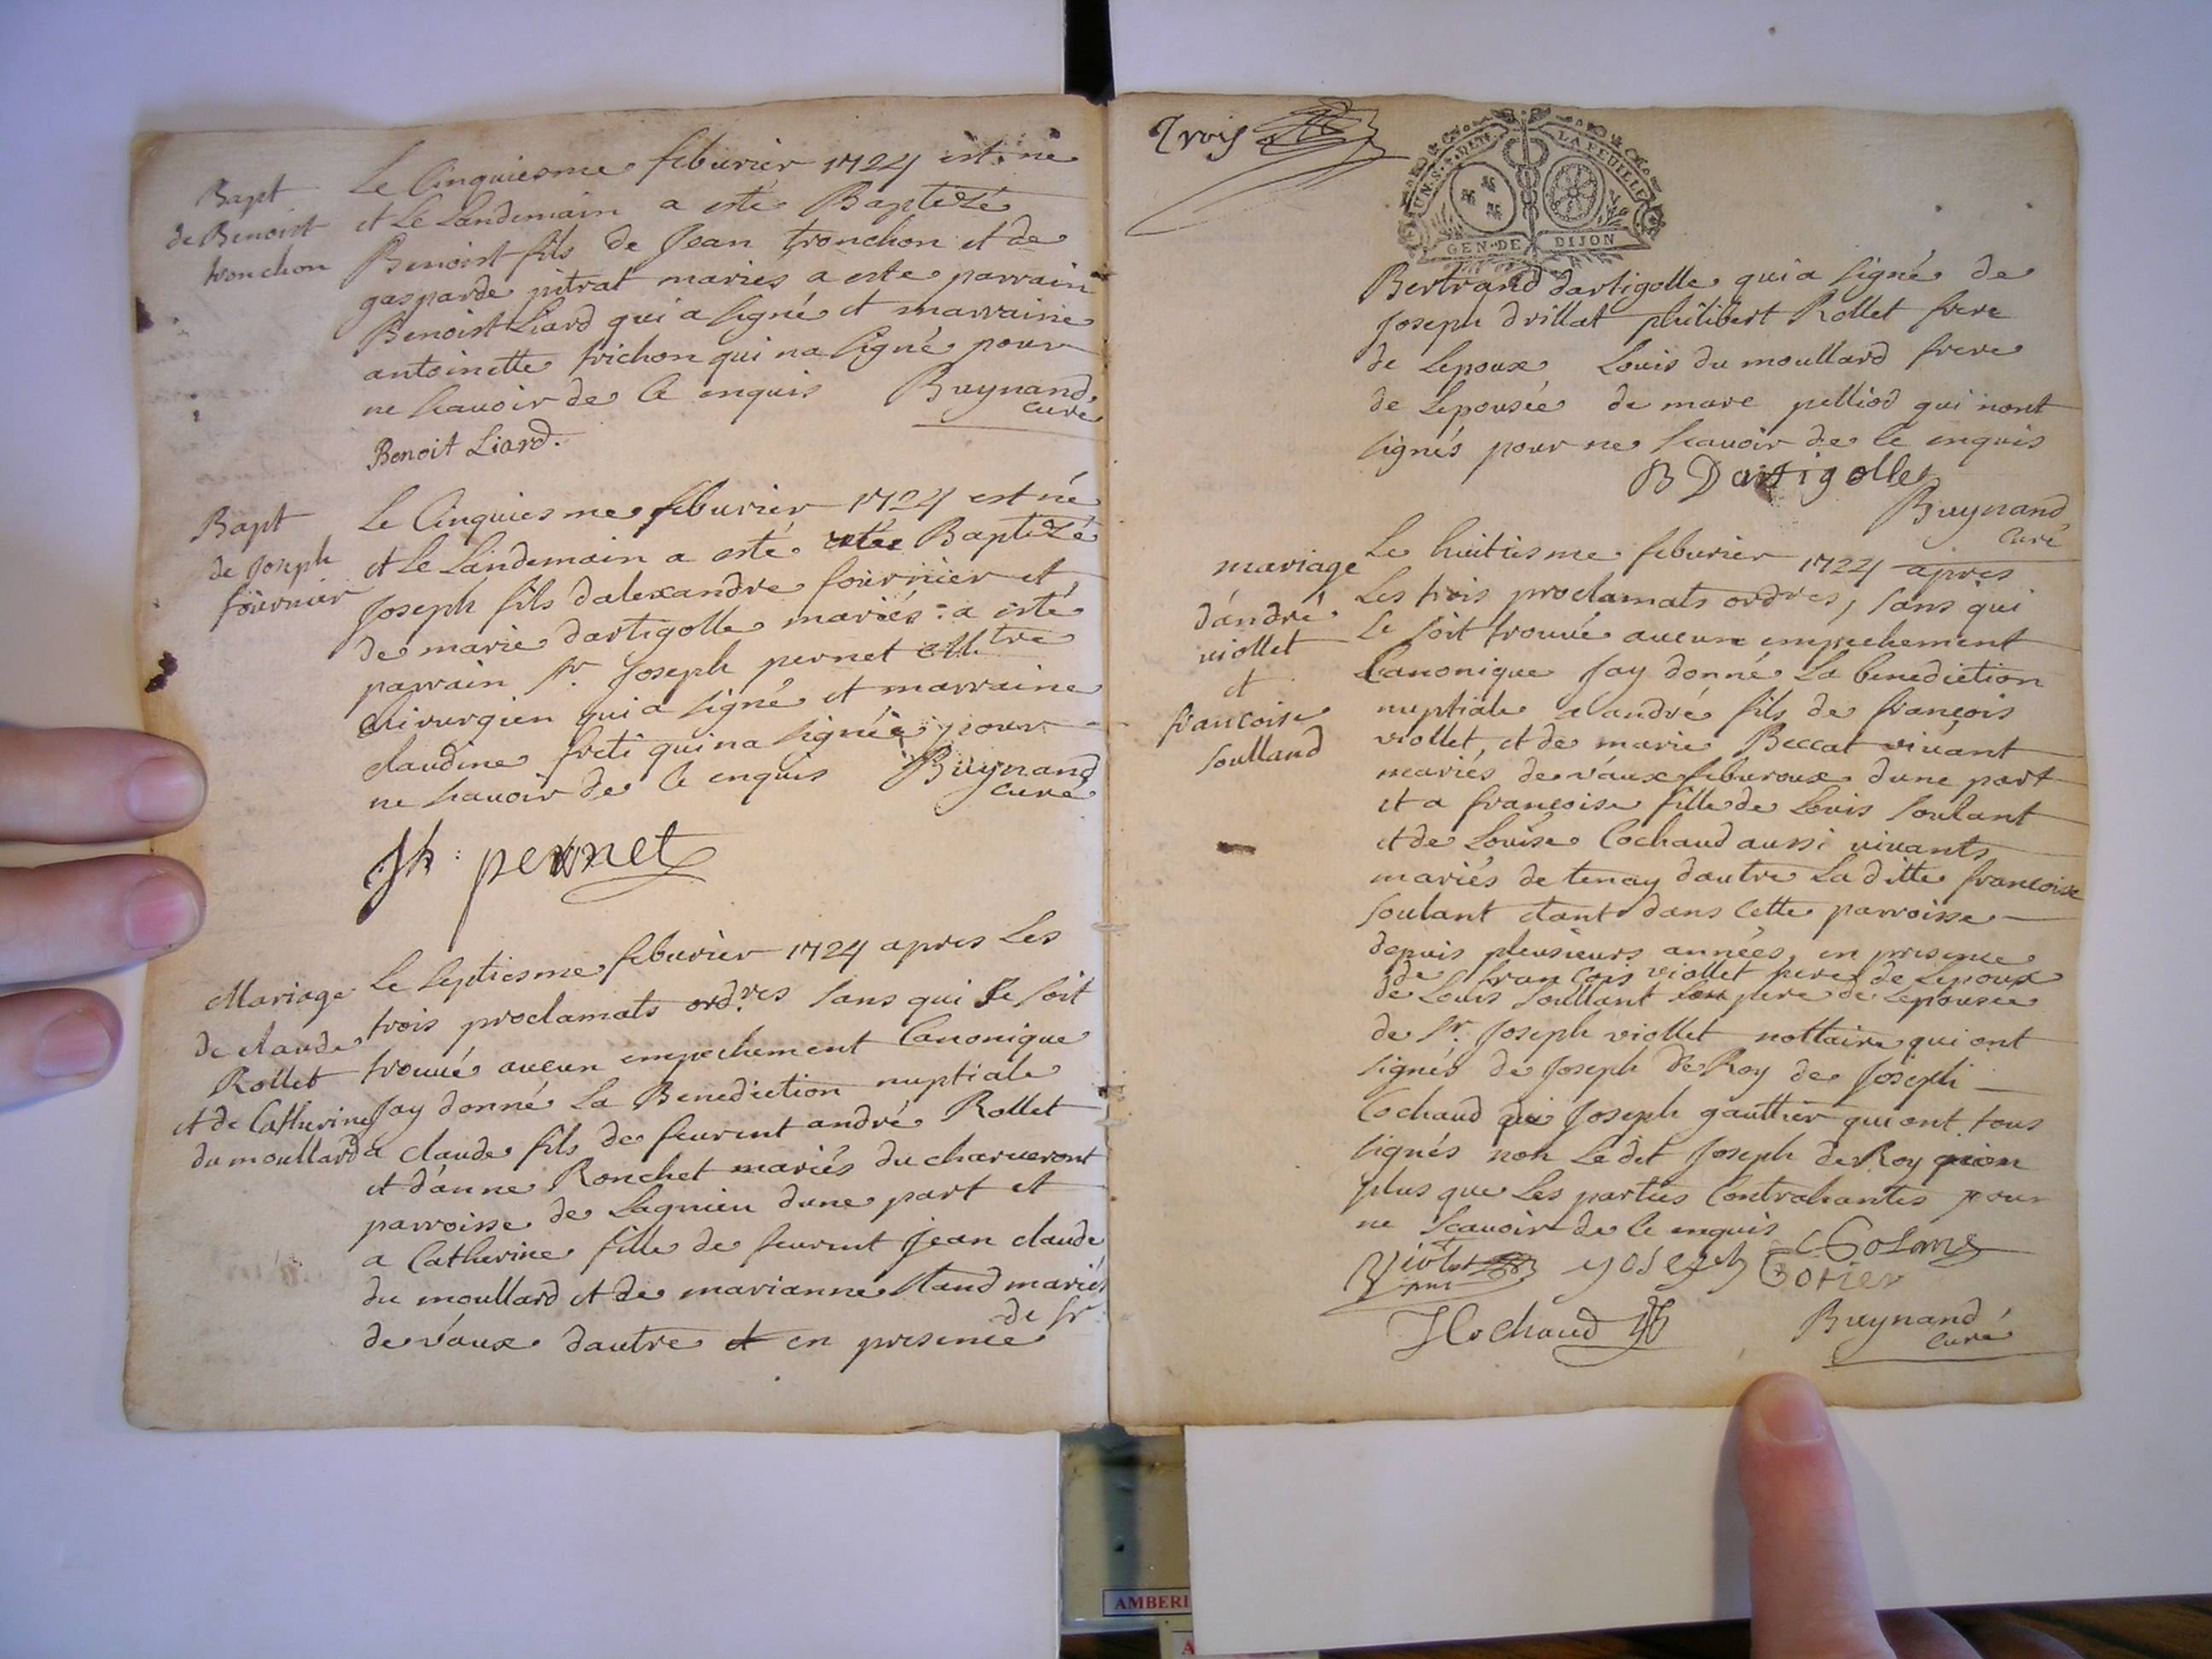 Bapt
de Benoist
tronchon
Le Cinquiesme feburier 1724 est né
et Le Landemain a esté Baptizé
Benoist fils de Jean tronchon et de
gasparde pitrat mariés a esté parrain
Benoist Liard qui a signé et marraine
antoinette trichon qui na signé pour
ne scauoir de ce enquis Buynand
curé
Benoit Liard.
Bapt
de Joseph
fournier
Le Cinquiesme feburier 1724 est né
et Le Landemain a esté Baptizé
Joseph fils dalexandre fournier et
de marie dartigolle mariés : a esté
parrain Sr. Joseph pernet mtre
chirurgien qui a signé et marraine
claudine freti qui na signée pour
ne scauoir de ce enquis Buynand
curé
Jh : pernet
Mariage
de claude
Rollet
et de Catherine
du moullard
Le Septiesme feburier 1724 apres Les
trois proclamats ordres sans qui se soit
trouué aucun empechement Canonique
Jay donné La Benediction nuptiale
a claude fils de feurent andré Rollet
et dánne Ronchet mariés du charueront
parroisse de Lagnieu dune part et
a Catherine fille de feurent Jean claude
du moullard et de marianne Staud mariés
de váux dautre et en presence
de Sr
Trois
UN. S. 8. DEN. LA FEUILLE
GEN. DE DIJON
Bertrand dartigolle qui a signé de
Joseph drillat philibert Rollet frere
de Lepoux Louis du moullard frere
de Lepousée de marc pelliod qui nont
signés pour ne scauoir de ce enquis
B Dartigolle
Buynand
Curé
mariage
dándré
viollet
et
francoise
soulland
Le huitiesme feburier 1724 apres
Les trois proclamats ordres, sans qui
Se soit trouué aucun empechement
Canonique Jay donné La benediction
nuptiale a andré fils de françois
viollet, et de marie Beccat viuant
mariés de váux feburoux dune part
et a françoise fille de Louis Soulant
et de Louise Cochaud aussi viuants
mariés de tenay dautre La ditte francoise
Soulant etant dans Cette parroisse
depuis plusieurs années, en presence
de francois viollet pere de Lepoux
de Louis Soullant pere de Lepousée
de Sr. Joseph viollet nottaire qui ont
signés de Joseph de Roy de Joseph
Cochaud Joseph gautthier qui ont tous
signés non Le dit Joseph de Roy
plus que Les parties Contrahantes pour
ne Scauoir de Ce enquis
Violet yosezh Gotier
JCochaud
Buynand
Curé
AMBERI